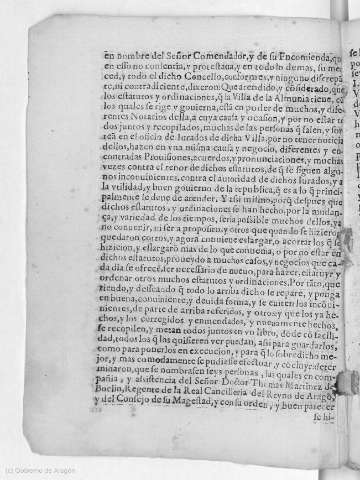 en nombre del Señor Comendador, y de su Encomienda, que
en esso no consentia, y protestaua, y en todo lo demas, su mer-
ced, y todo el dicho Concello, conformes, y ninguno discrepā
te, ni contradiciente, dixeron: Que atendido, y cōsiderado, que
los estatutos y ordinaciones, q̃ la Villa de la Almunia tiene, cō
los quales se rige y gouierna, està en poder de muchos, y dife-
rentes Notarios della, a cuya causa y ocasion, y por no estar to
dos juntos y recopilados, muchas de las personas q̃ salen, y sor
teā en el oficio de Iurados de dicha Villa, por no tener noticia
dellos, hazen en vna misma causa y negocio, diferentes y en-
contradas Prouisiones, acuerdos, y pronunciaciones, y muchas
vezes contra el tenor de dichos estatutos, de q̃ se siguen algu-
nos inconuinientes, contra el autoridad de dichos Iurados, y a
la vtilidad, y buen gouierno de la republica, q̃ es a lo q̃ princi-
palmente se deue de atender. Y assi mismo, porq̃ despues que
dichos estatutos y ordinaciones se han hecho, por la mudan-
ça, y variedad de los tiempos, seria possible muchos dellos, ya
no conuenir, ni ser a proposito, y otros que quando se hizierō
quedaron cortos, y agora conuiniesse alargar, o acortar los q̃ se
hizieron, y estargarō mas de lo que conuenia, o por no estar en
dichos estatutos, proueydo a muchos casos, y negocios que ca-
da dia se ofrecē, ser necessario de nueuo, para hazer, estatuyr y
ordenar otros muchos estatutos y ordinaciones. Por tāto, que
riendo, y desseando q̃ todo lo arriba dicho se repare, y ponga
en buena, conuiniente, y deuida forma, y se euiten los incōui-
nientes, de parte de arriba referidos, y otros; y que los ya he-
chos, y los corregidos y enmendados, y nueuamente hechos,
se recopilen, y metan todos juntos en vn libro, dōde cō facili-
dad, todos los q̃ los quisieren ver puedan, assi para guardarlos,
como para ponerlos en execucion, y para q̃ lo sobredicho me-
jor, y mas comodamente se pudiesse efetuar, y cōcluyr, deter
minaron, que se nombrassen seys personas, las quales en com-
pañia, y assistencia del Señor Doctor Thomas Martinez de
Boclin, Regente de la Real Cancilleria del Reyno de Aragō,
y del Consejo de su Magestad, y con su orden, y buen parecer
se hi-
(c) Gobierno de Aragón